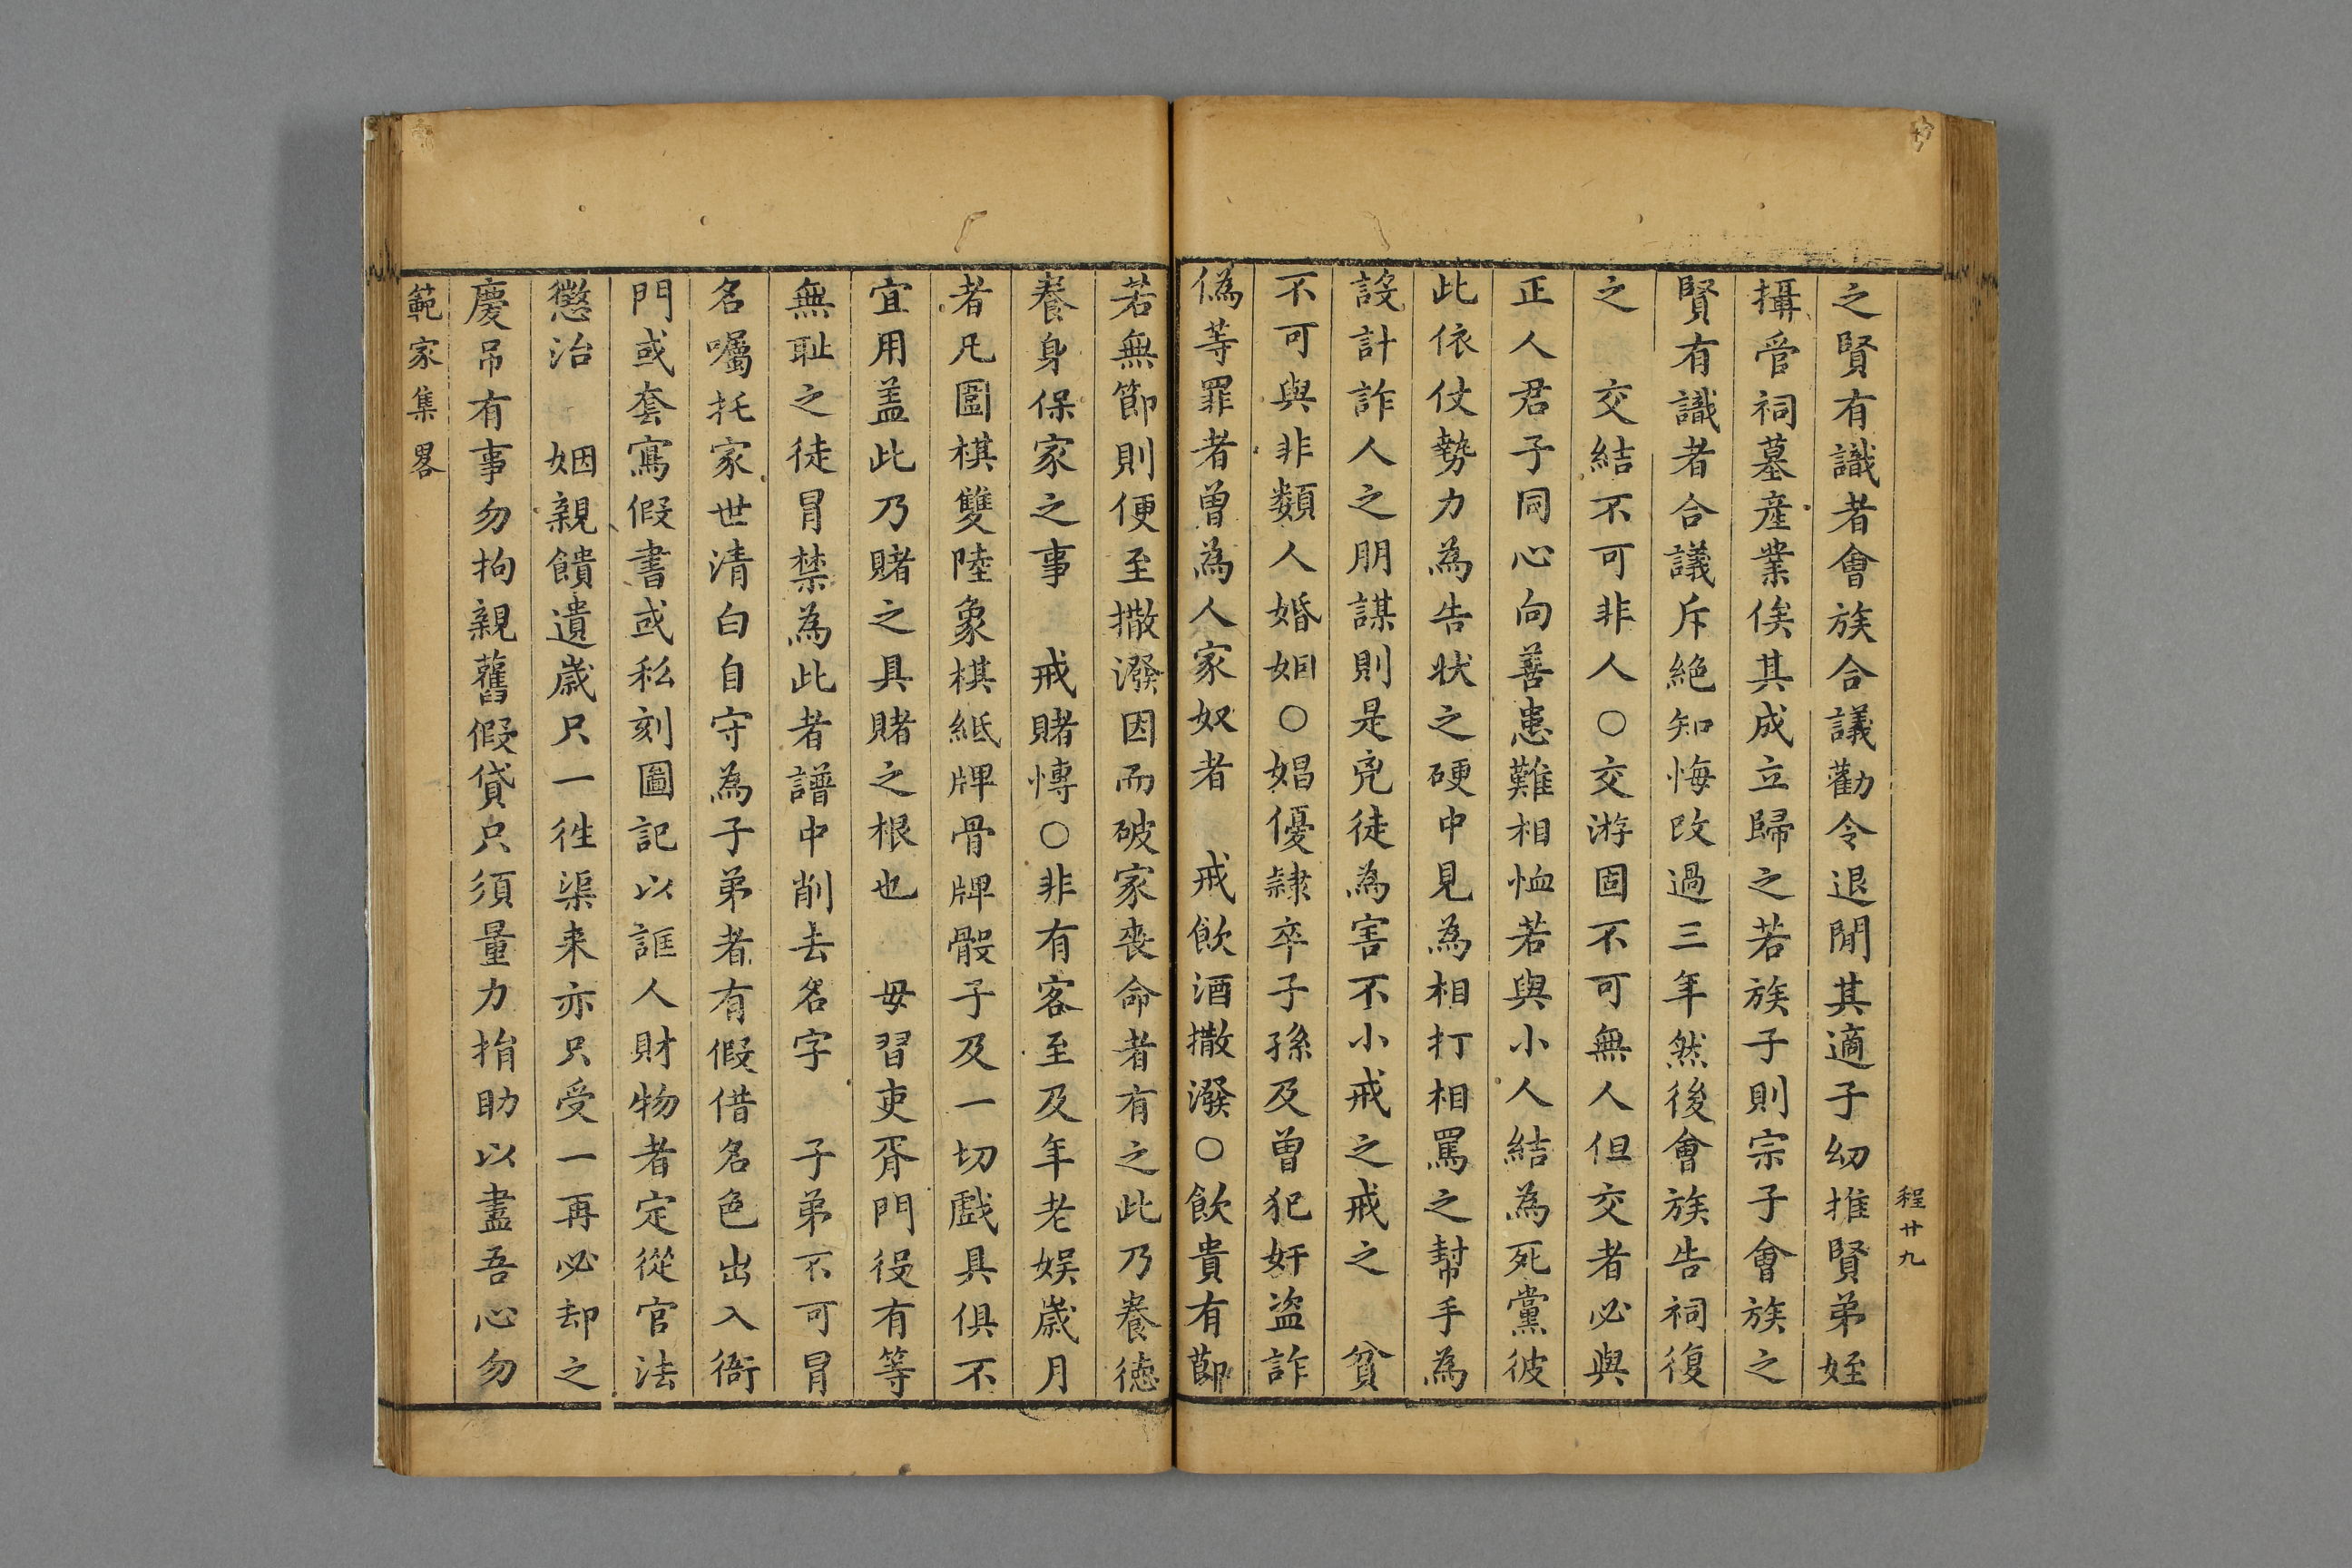 程廿九
之賢有識者會族合議勸令退閒其適子幼推賢弟姪
攝管祠墓産業俟其成立歸之若族子則宗子會族之
賢有識者合議斥絶知悔改過三年然後會族告祠復
之　交結不可非人○交游固不可無人但交者必與
正人君子同心向善患難相恤若與小人結為死黨彼
此依仗勢力為告狀之硬中見為相打相罵之幇手為
設計詐人之朋謀則是兇徒為害不小戒之戒之　貧
不可與非類人婚姻○娼優隷卒子孫及曽犯奸盗詐
偽等罪者曽為人家奴者　戒飲酒撒潑○飲貴有節
若無節則便至撒潑因而破家喪命者有之此乃養徳
養身保家之事　戒賭慱○非有客至及年老娱歳月
者凡圍棋雙陸象棋紙牌骨牌骰子及一切戲具俱不
宜用盖此乃賭之具賭之根也　毋習吏胥門役有等
無耻之徒冒禁為此者譜中削去名字　子弟不可冒
名囑托家世清白自守為子弟者有假借名色出入衙
門或套寫假書或私刻圖記以誆人財物者定從官法
懲治　姻親饋遺歳只一徃渠来亦只受一再必却之
慶吊有事勿拘親舊假貸只須量力捐助以盡吾心勿
範家集畧